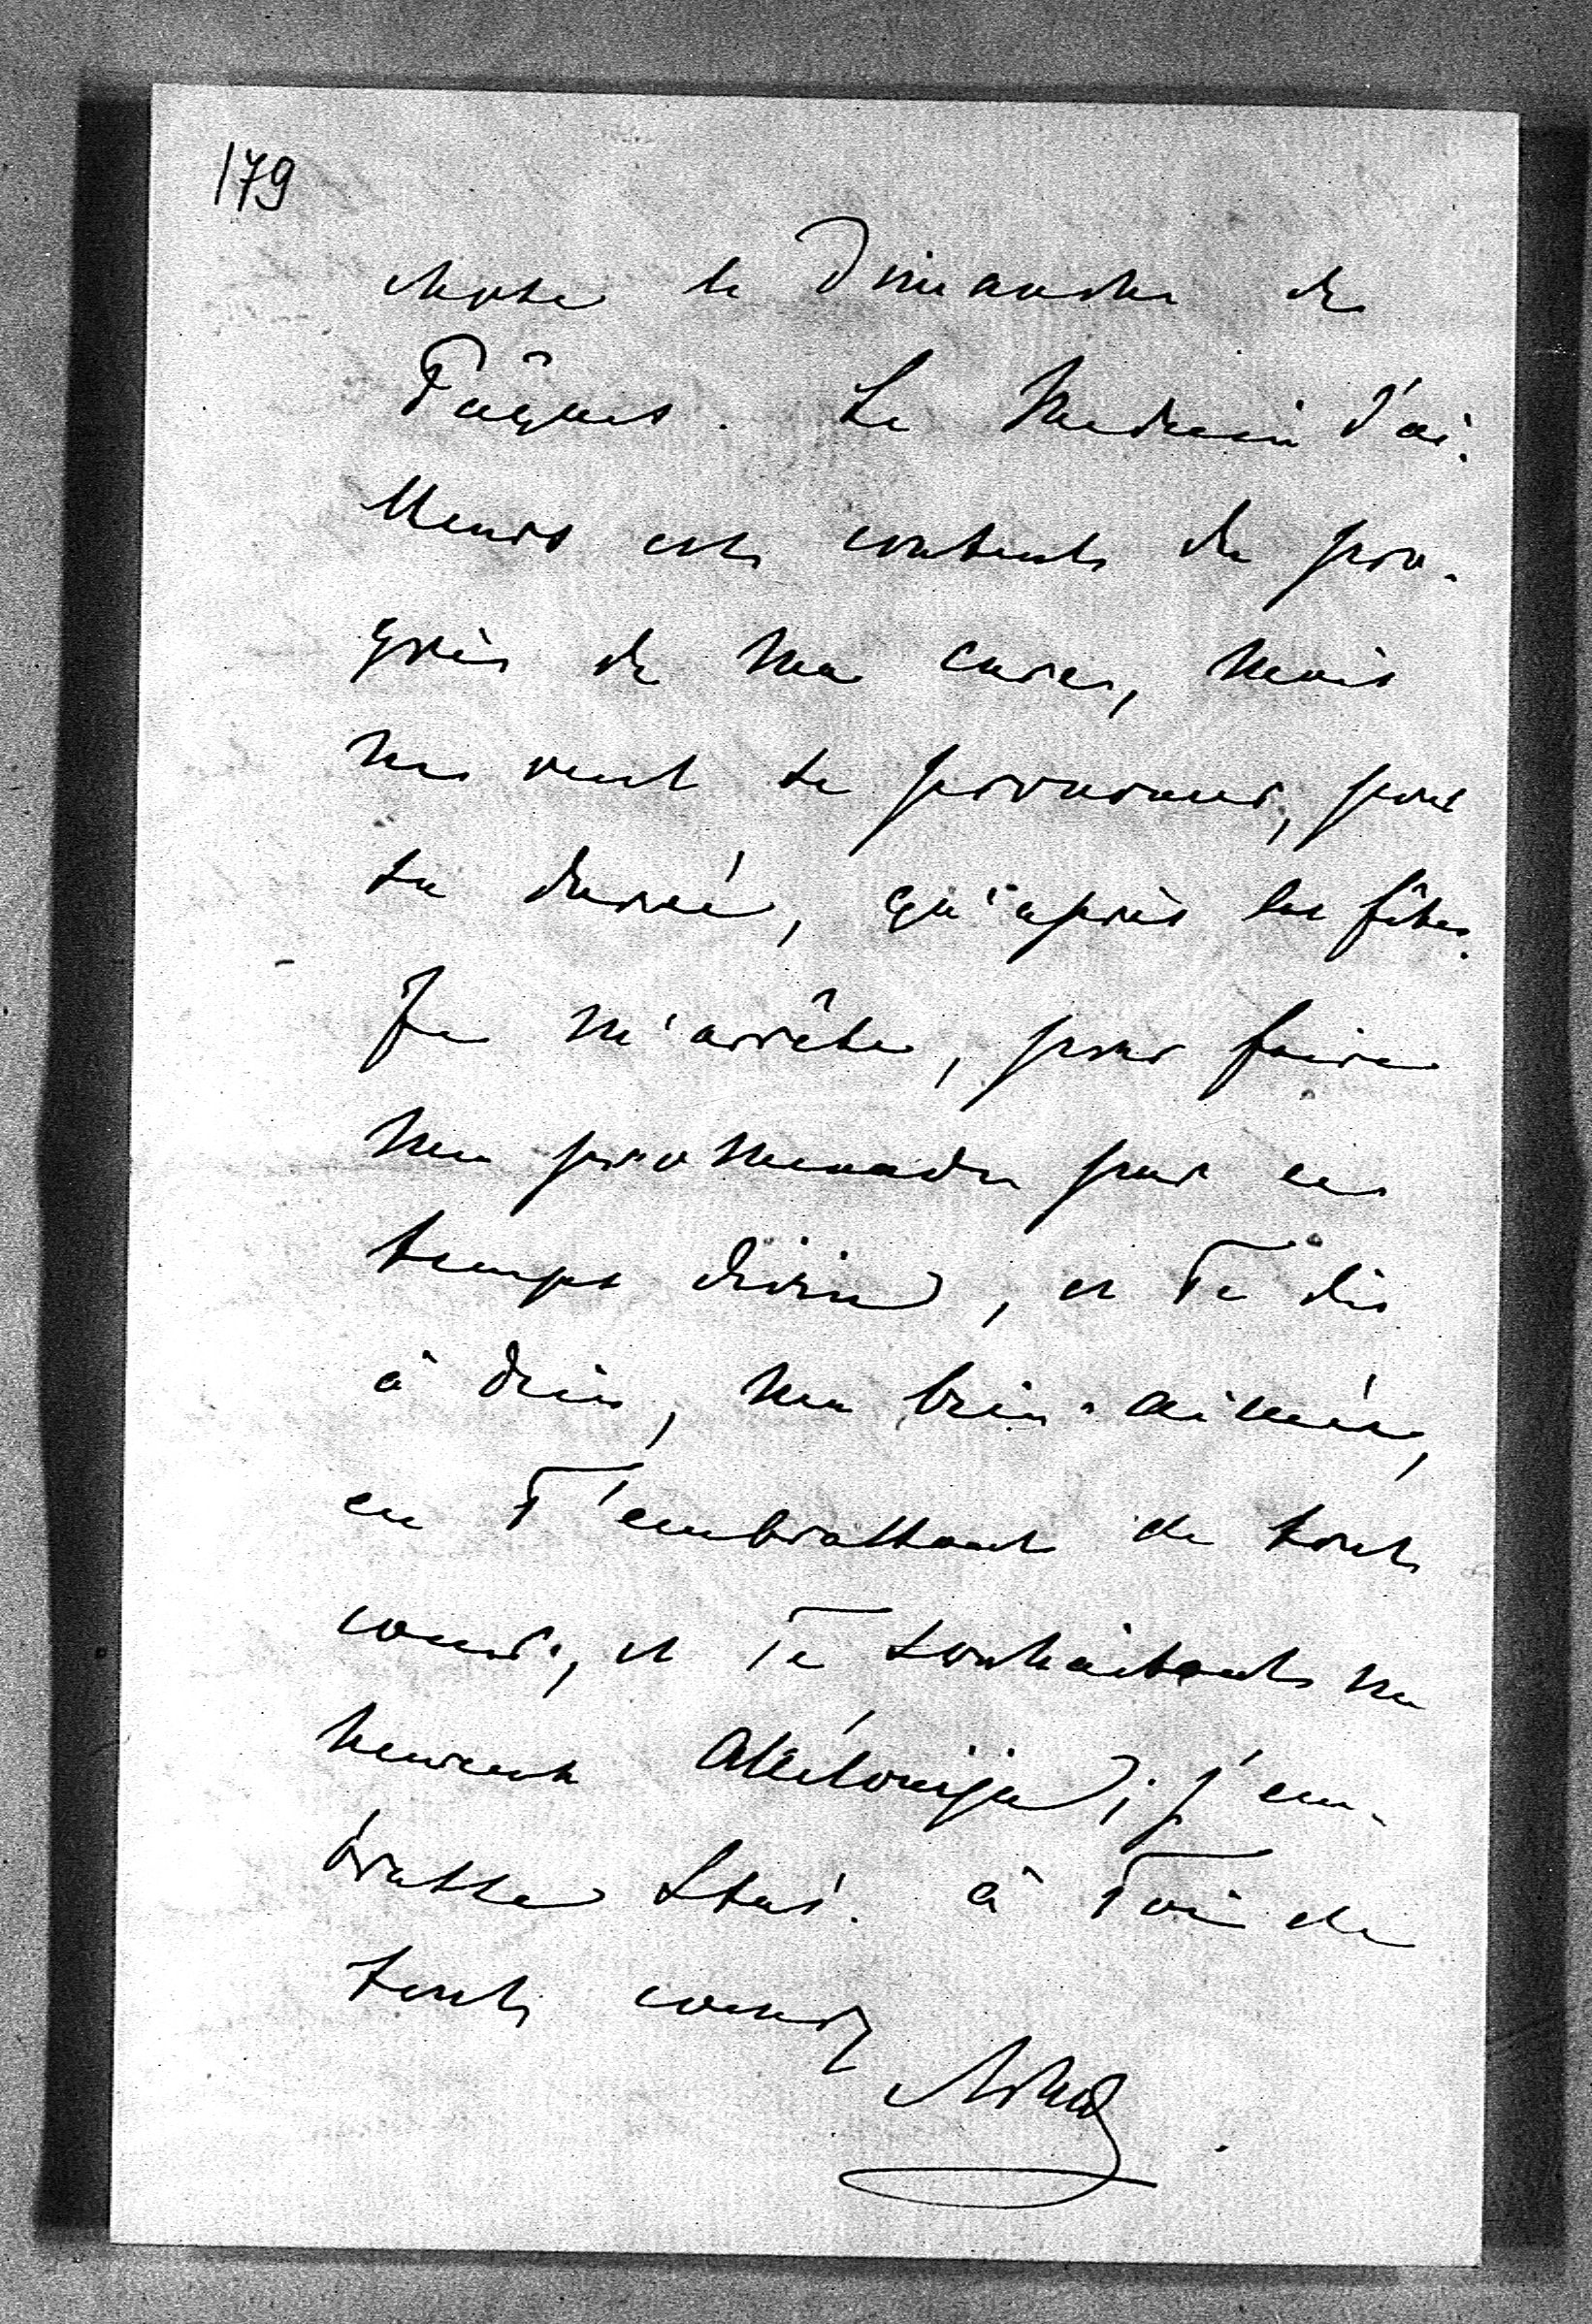 179
chose le Dimanche de
Pâques. Le Medecin d'ai-
lleurs est content du pro-
grès de ma cure, mais
ne veut se prononcer, pour
sa durée, qu'après les fêtes.
Je m'arrête, pour faire
ma promenade par ce
temps divin, et Te dis
à dieu, ma bien-aimée,
en T'embrassant de tout
coeur, et Te souhaitant un
heureux Allélouija; j'em-
brasse Stas. à Toi de
tout coeur